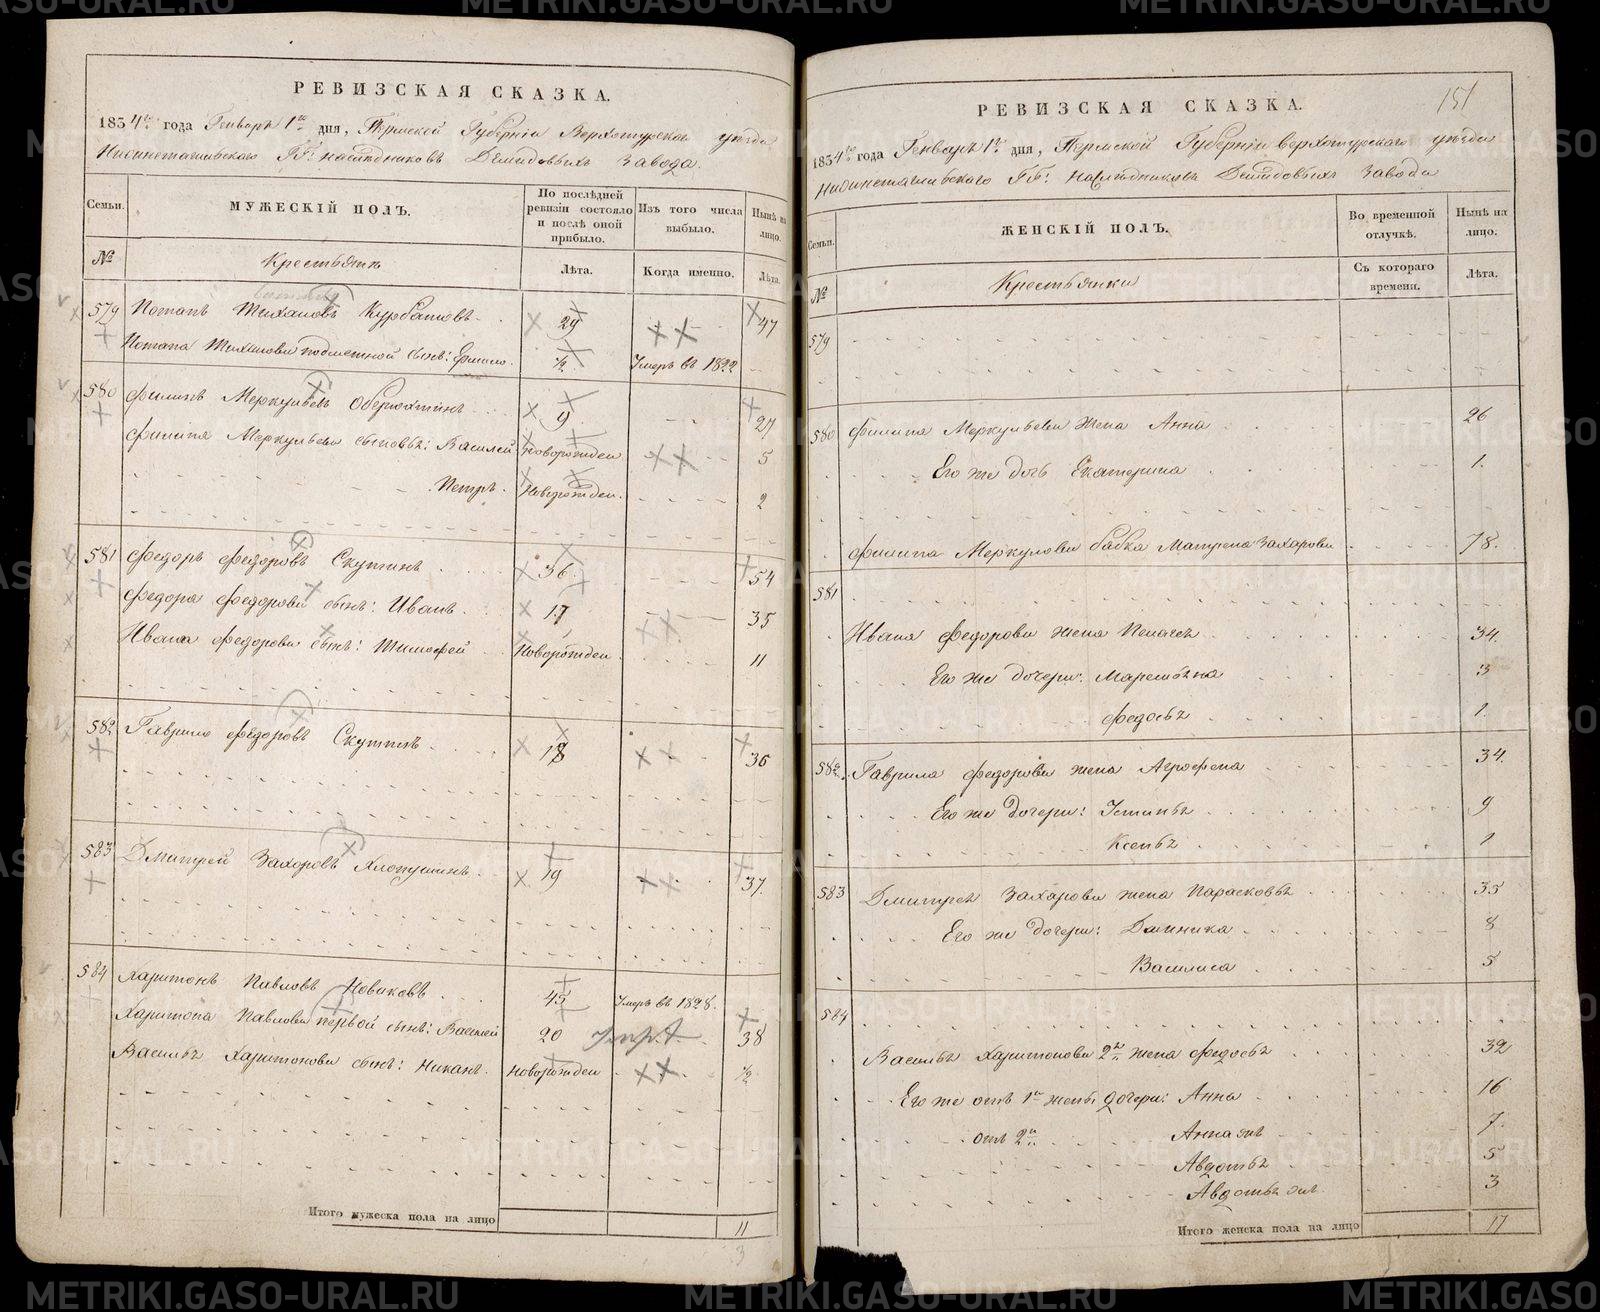 РЕВИЗСКАЯ СКАЗКА.
1834го года Генваря 1го дня, Пермской Губерніи Верхотурскаго уѣзда
Нижнетагильскаго ГГ: наслѣдниковъ Демидовыхъ завода.
Семьи.
МУЖЕСКІЙ ПОЛЪ.
По послѣдней ревизіи состояло и послѣ оной прибыло.
Изъ того числа выбыло.
Нынѣ на лицо.
№
Крестьянъ
Лѣта.
Когда именно.
Лѣта.
579 Потапъ Тихановъ Курбатовъ 29 47
Потапа Тиханова подметной сынъ: ½ Умеръ въ 1822
580 Филипъ Меркульевъ 9 27
Филипа Меркульева сыновья: Василей Новорожден 5
Петръ. Новорожден. 2
581 Федоръ Федоровъ Скутинъ 36 54
Федора Федорова сынъ: Иванъ 17 35
Ивана Федорова сынъ: Тимофей Новорожден. 11
582 Гаврило Федоровъ Скутинъ 18 36
583 Дмитрей Захаровъ Хлопушинъ 19 37
584 Харитонъ Павловъ Новаковъ 45 Умеръ въ 1828.
Харитона Павлова первой сынъ: Василей 20 38
Василья Харитонова сынъ: Новорожден ½
Итого мужеска пола на лицо 11
3
РЕВИЗСКАЯ СКАЗКА.
151
1834го года Генваря 1го дня, Пермской Губерніи Верхотурскаго уѣзда
Нижнетагильскаго ГГ: Наслѣдниковъ Демидовыхъ завода
Семьи.
ЖЕНСКІЙ ПОЛЪ.
Во временной отлучкѣ.
Нынѣ на лицо.
№
Крестьянки
Съ котораго времени.
Лѣта.
579
580 Филипа Меркульева жена Анна 26
Его же дочь Екатерина 1.
Филипа Меркулова бабка Матрена Захарова 78.
581
Ивана Федорова жена Пелагея 34.
Его же дочери: Маремьяна 3
Федосья 1.
582. Гаврила Федорова жена Агрофена 34.
Его же дочери: Устинья 9
Ксенья 1
583 Дмитрея Захарова жена Парасковья 35
Его же дочери: Домника 8
Василиса 5
584
Василья Харитонова 2я жена Федосья 32
Его же отъ 1й жены дочери: Анна 16
отъ 2й Анна же 7.
Авдотья 5
Авдотья же 3
Итого женска пола на лицо 17
METRIKI.GASO-URAL.RU